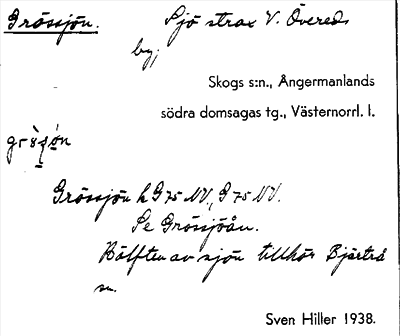 Grössjön. Sjö strax V. Övereds
by;
Skogs s:n., Ångermanlands
södra domsagas tg., Västernorrl. l.
Grössjön h G 75 NV., G 75 NV.
Se Grössjöån.
Hälften av sjön tillhör Bjärtrå
sn.
Sven Hiller 1938.